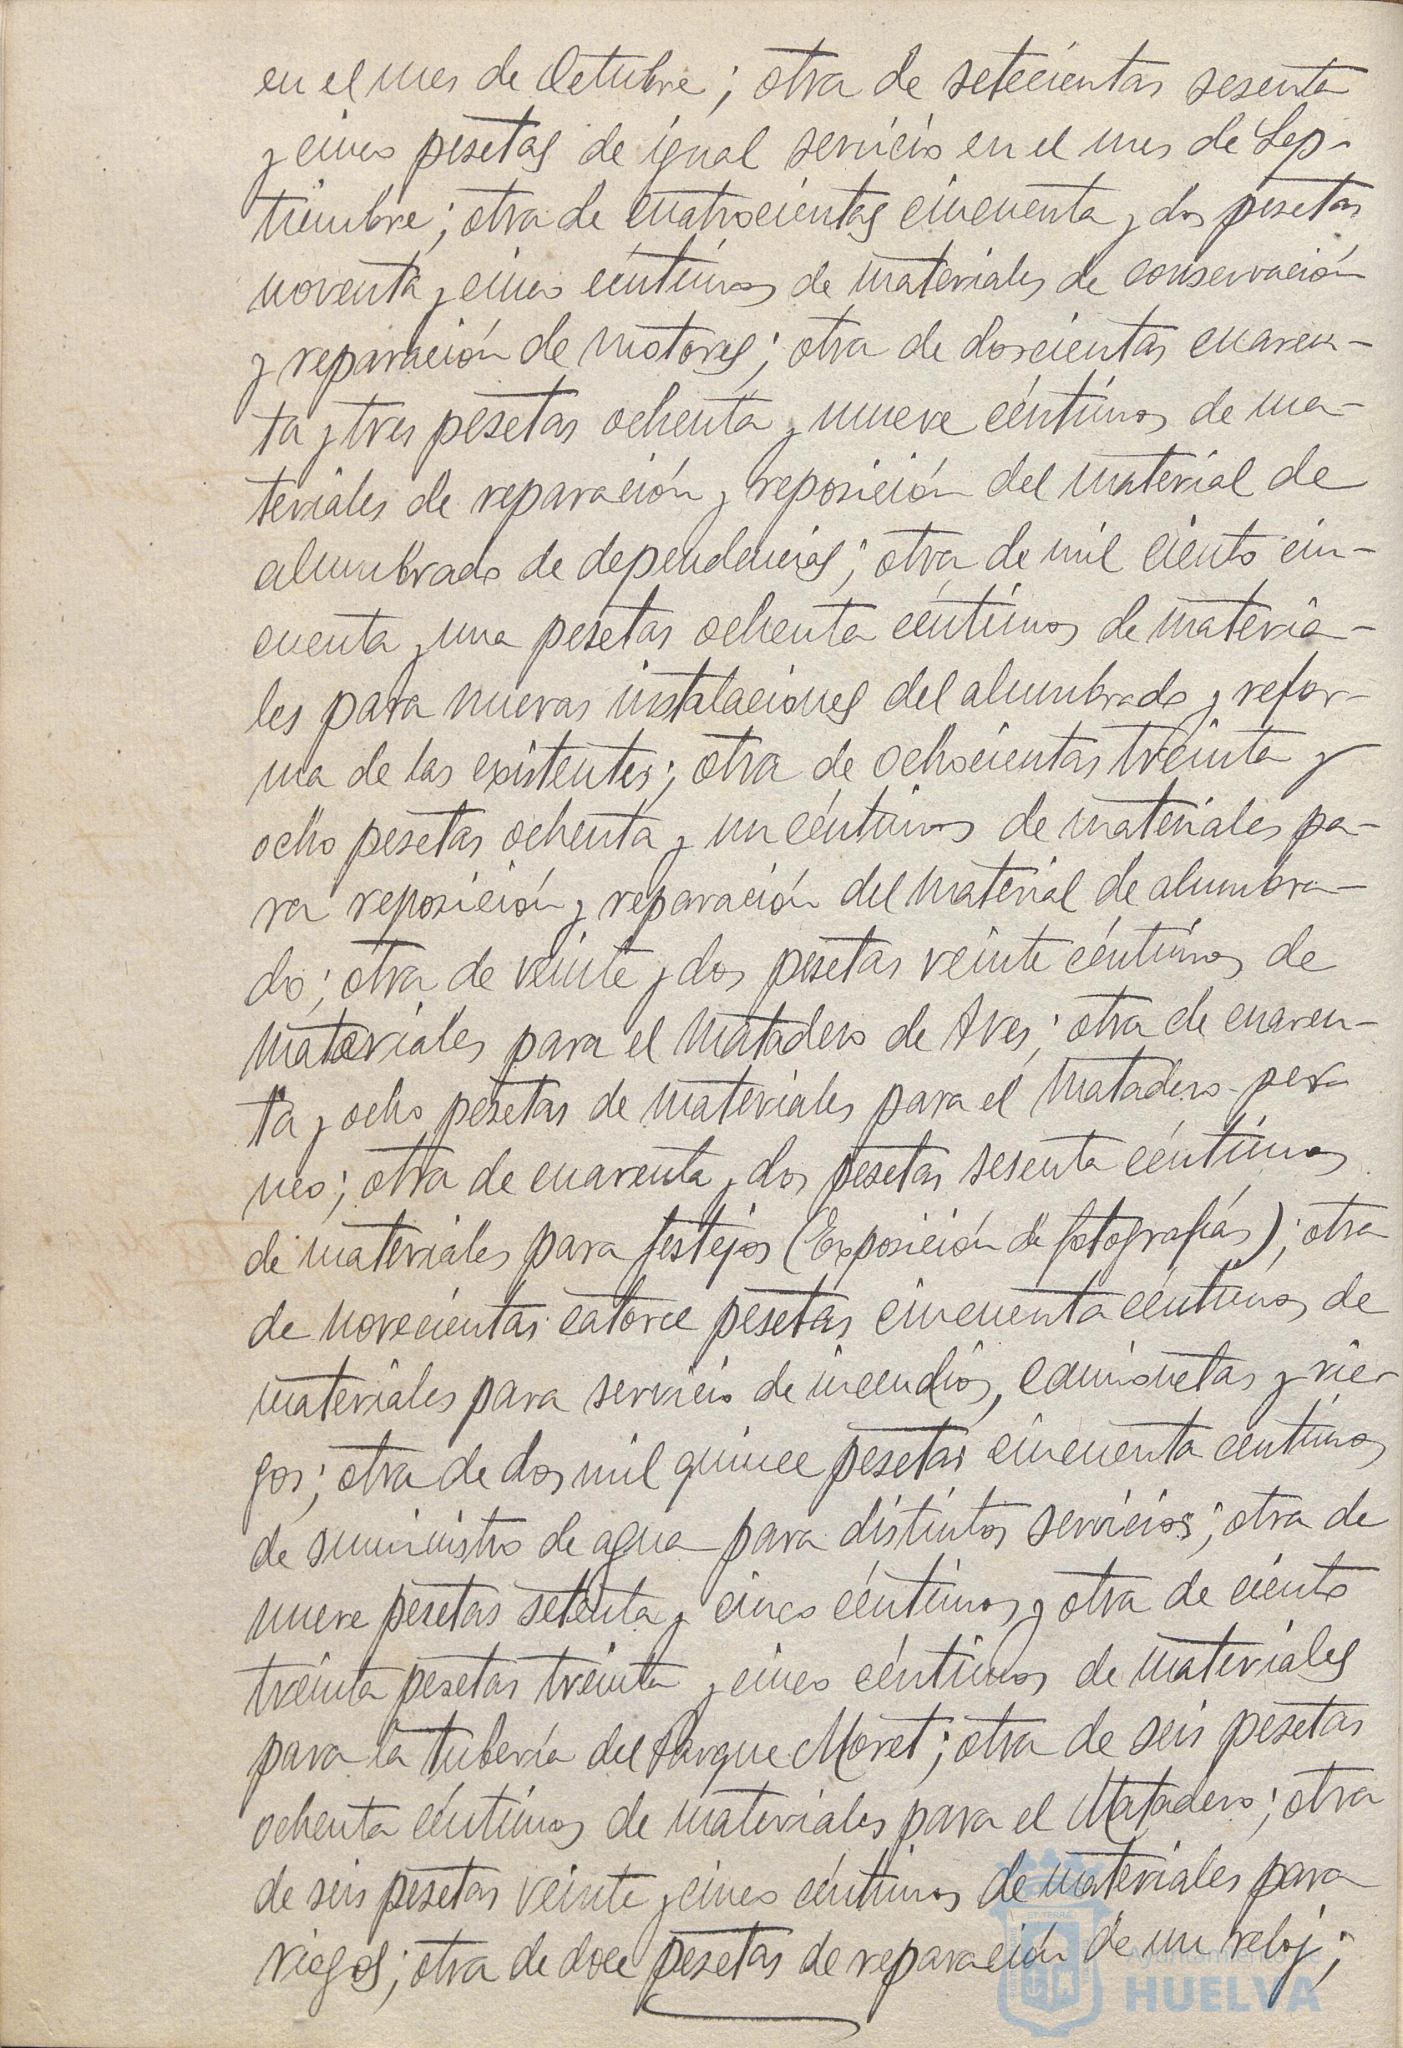 en el mes de Octubre; otra de setecientas sesenta
y cinco pesetas de igual servicio en el mes de Sep-
tiembre; otra de cuatrocientas cincuenta y dos pesetas
noventa y cinco céntimos de materiales de conservación
y reparación de motores; otra de doscientas cuaren-
ta y tres pesetas ochenta y nueve céntimos de ma-
teriales de reparación y reposición del material de
alumbrado de dependencias; otra de mil ciento cin-
cuenta y una pesetas ochenta céntimos de materia-
les para nuevas instalaciones del alumbrado y refor-
ma de las existentes; otra de ochocientas treinta y
ocho pesetas ochenta y un céntimos de materiales pa-
ra reposición y reparación del material de alumbra-
do; otra de veinte y dos pesetas veinte céntimos de
materiales para el Matadero de Aves; otra de cuaren-
ta y ocho pesetas de materiales para el Matadero per
neo; otra de cuarenta y dos pesetas sesenta céntimos
de materiales para festejos (Exposición de fotografías); otra
de novecientas catorce pesetas cincuenta céntimos de
materiales para servicio de incendios, camionetas y rie-
gos; otra de dos mil quince pesetas cincuenta centimos
de suministro de agua para distintos servicios; otra de
nueve pesetas setenta y cinco céntimos y otra de ciento
treinta pesetas treinta y cinco céntimos de materiales
para la tubería del Parque Moret; otra de seis pesetas
ochenta céntimos de materiales para el Matadero; otra
de seis pesetas veinte y cinco céntimos de materiales para
riegos; otra de doce pesetas de reparación de un reloj;
Ayuntamiento de
HUELVA